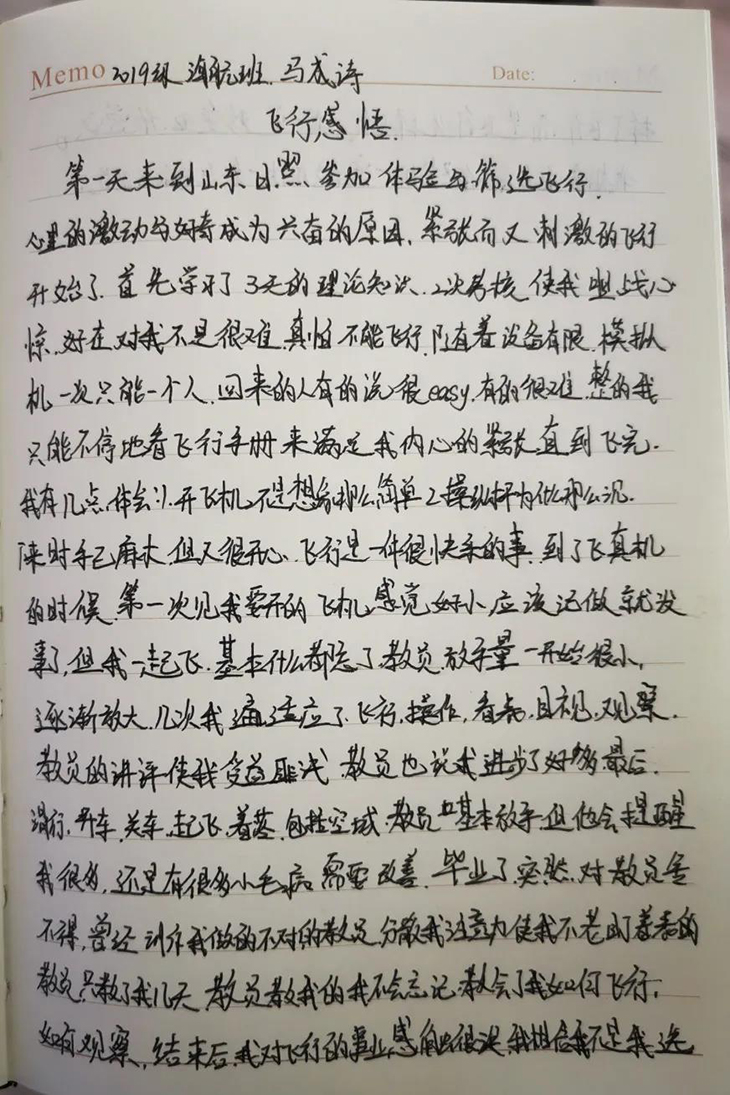 Memo 2019级 海航班 马成诗 Date:
飞行感悟.
第一天来到山东日照 参加体验与筛选飞行,
心里的激动与好奇成为兴奋的原因, 紧张而又刺激的飞行
开始了. 首先学习了3天的理论知识. 2次考核使我胆战心
惊, 好在对我不是很难. 真怕不能飞行. 随着设备有限. 模拟
机一次只能一个人. 回来的人有的说很easy. 有的很难. 整的我
只能不停地看飞行手册来满足我内心的紧张. 直到飞完.
我有几点体会: 1. 开飞机不是想象那么简单 2 操纵杆为什么那么沉.
来时手已麻木, 但又很开心. 飞行是一件很快乐的事. 到了飞真机
的时候. 第一次见我要开的飞机, 感觉好小, 应该没做就没
事了, 但我一起飞. 基本什么都忘了. 教员放手量一开始很小,
逐渐放大. 几次我适应了飞行, 操作, 看表, 目视, 观察.
教员的讲评使我受益匪浅. 教员也说我进步了好多. 最后.
滑行, 开车, 关车, 起飞, 着落, 包括空域. 教员基本放手. 但他会提醒
我很多, 还是有很多小毛病需要改善. 毕业了, 突然, 对教员舍
不得, 曾经训斥我做的不对的教员, 分散我注意力使我不老盯着表的
教员. 只教了我几天. 教员教我的我不会忘记, 教会了我如何飞行,
如何观察, 结束后, 我对飞行的事业, 感很深, 我相信我不是我选